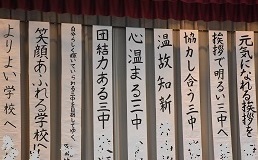 元気になれる挨拶を
挨拶で明るい三中へ
協力し合う三中
温故知新
心温まる三中
団結力ある三中
笑顔あふれる学校へ
よりよい学校へ